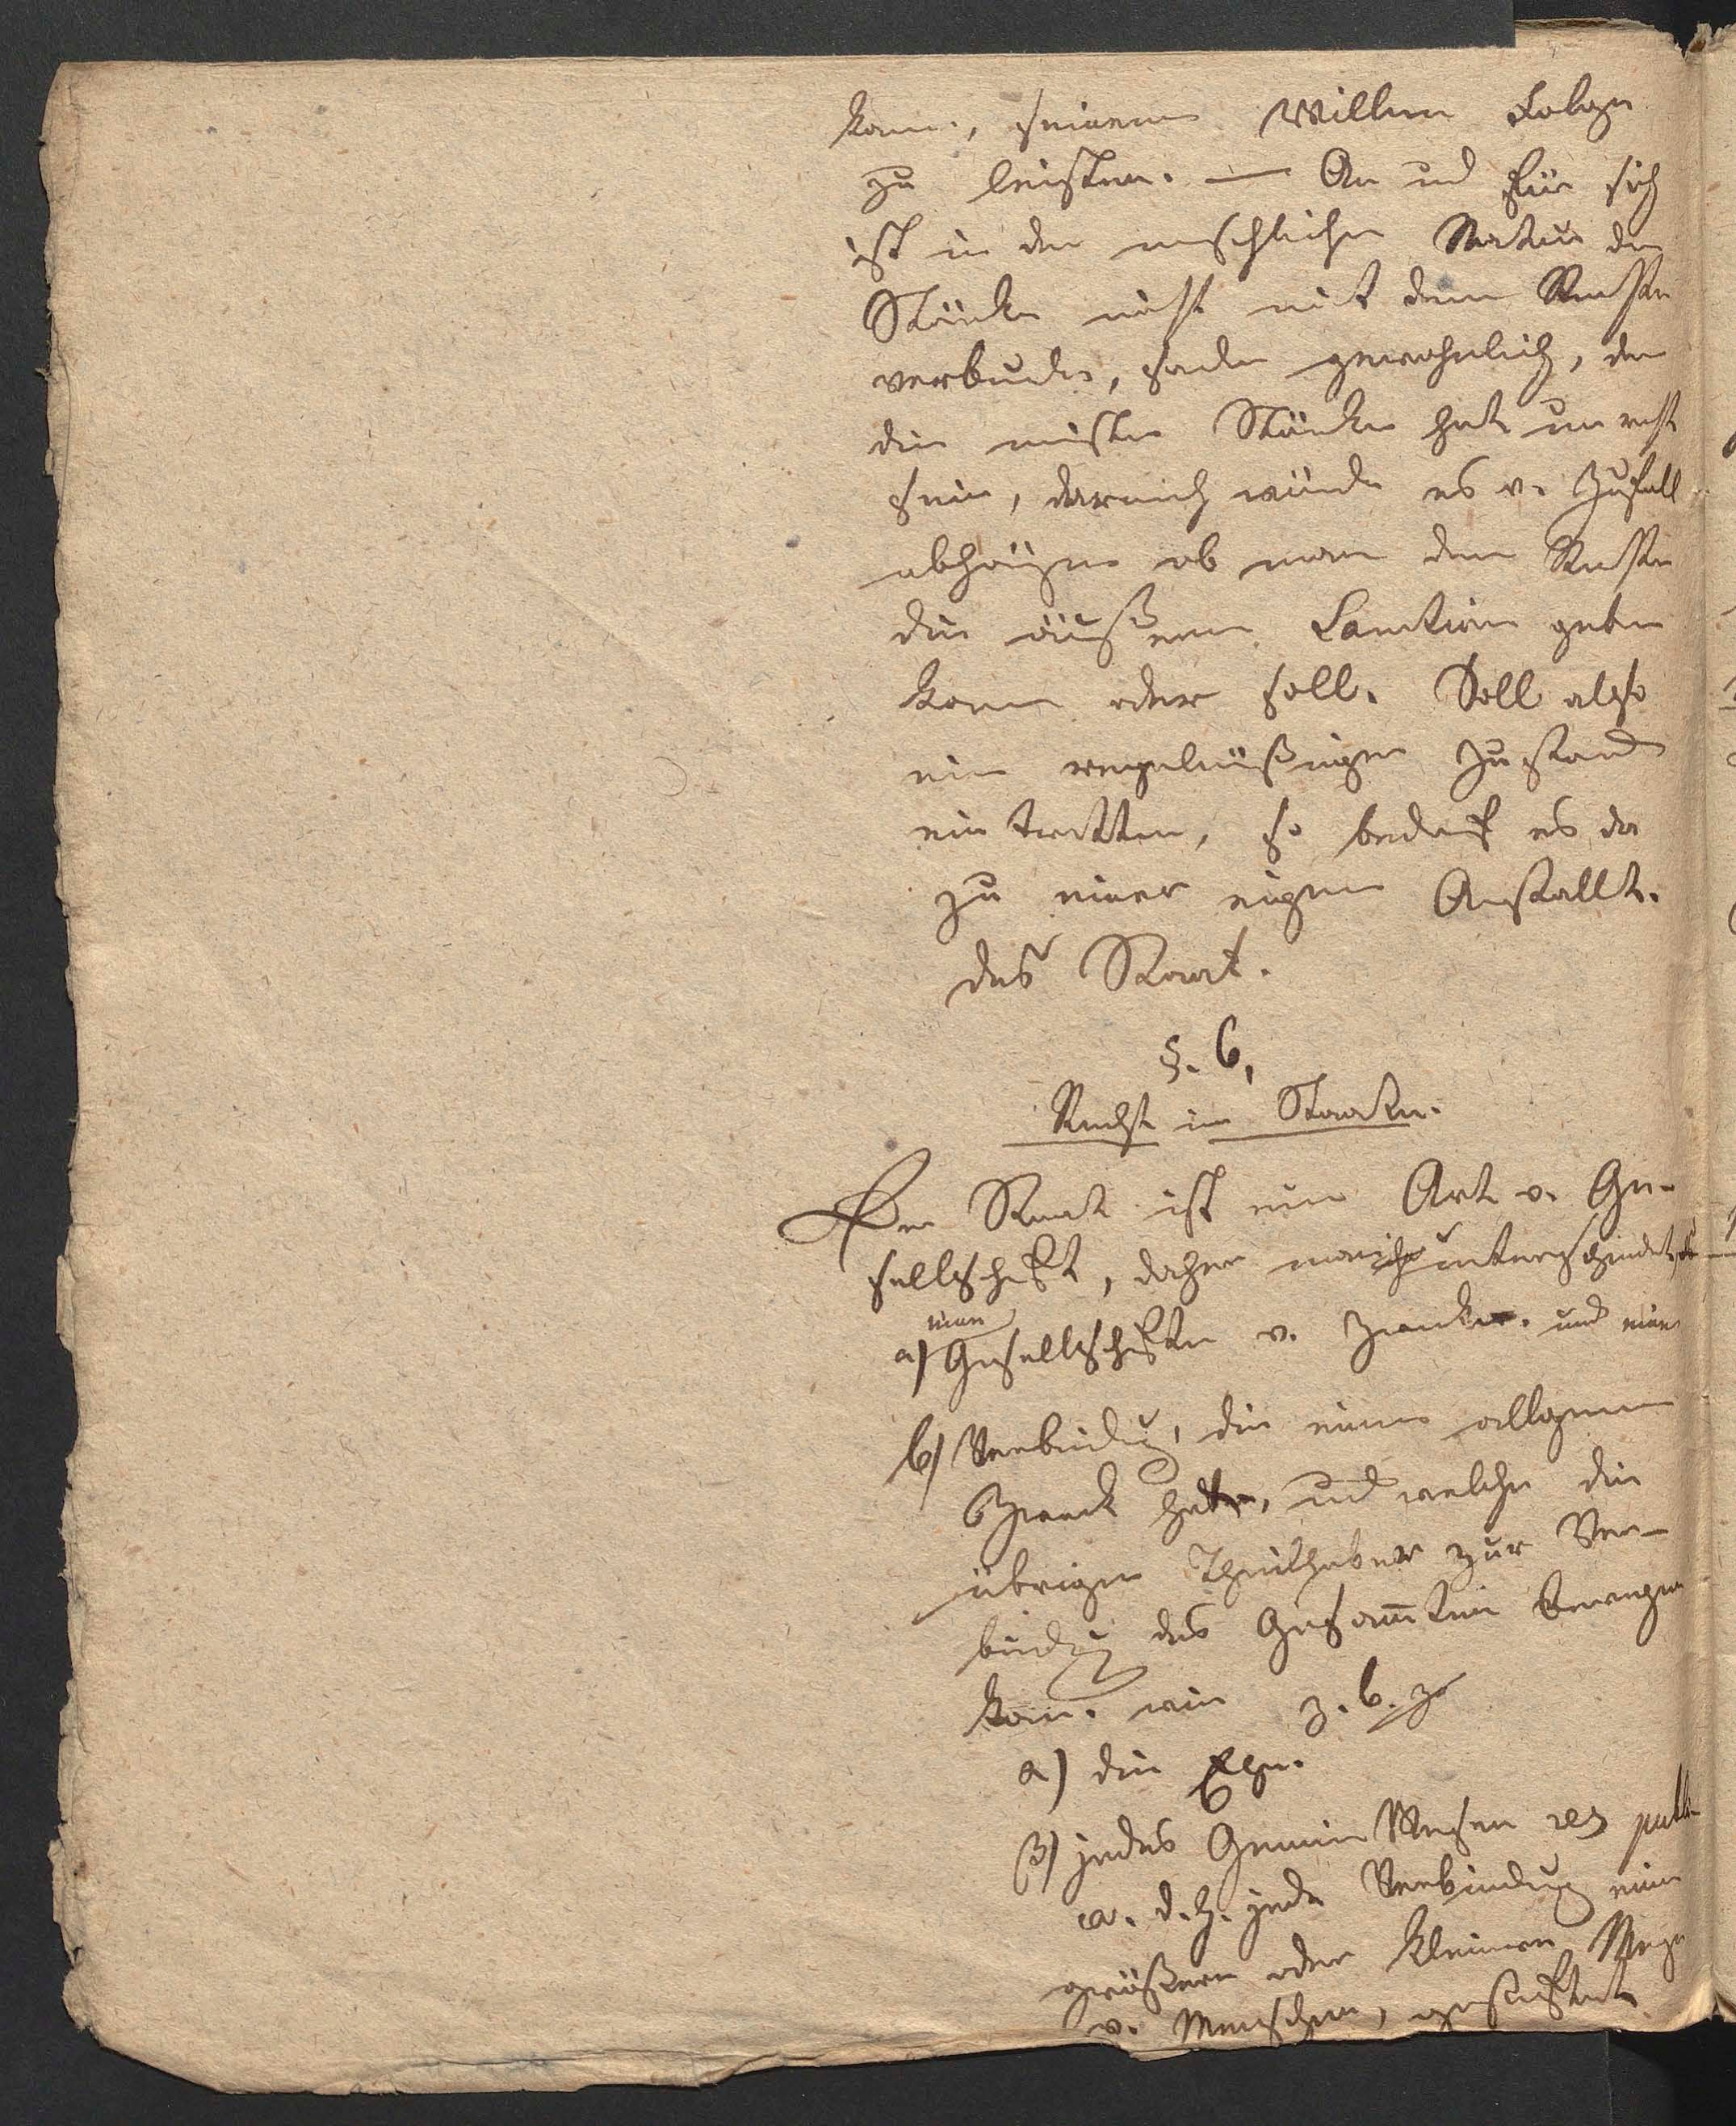 kann, seinem Willen Folge
zu leisten. — An und für sich
ist in der menschlichen Natur die
Stärke nicht mit dem Rechte
verbunden, sonder gewohnlich, der
die meiste Stärke hat unrecht
sein, darnach würde es v. Zufall
abhängen ob man dem Rechte
die äußere Sanction geben
kann oder soll. Soll also
ein regelmäßiger Zustand
ein tretten, so bedarf es da
zu einer eigenen Anstallt.
des Staat.
§. 6,
Recht im Staate.
Der Staat ist eine Art v. Ge-
sellschaft, daher unterscheidet
man
a) Gesellschaften v. Zwecke. und
b) Verbindung, die einen allgemeinen
Zweck hat, und welche die
übrigen Theilhaber zur Ver-
bindung des Gesam̄ten bewegen
kann. wie z. b.
α) die Ehe.
β) jedes Gemein Wesen res publi-
ca. d. h. jede Verbindung einer
größern oder kleinern Menge
v. Menschen, gestiftet